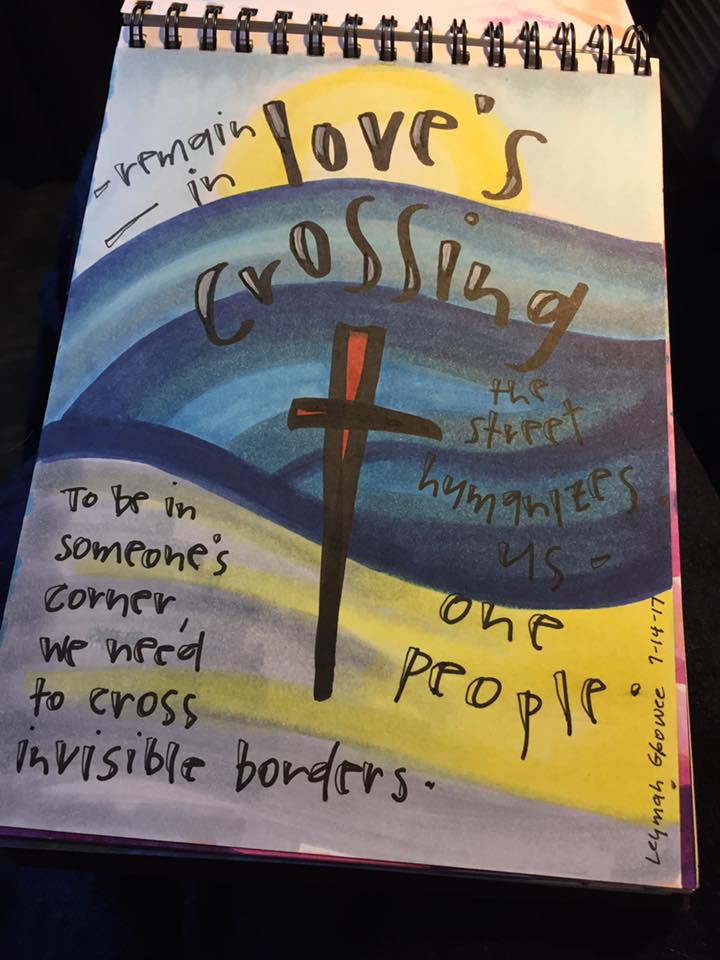 -remain
- in
love's
crossing
the
street
humanizes
us -
one
people.
To be in
someone's
corner,
we need
to cross
invisible borders.
Leymah Gbowee 7-14-17